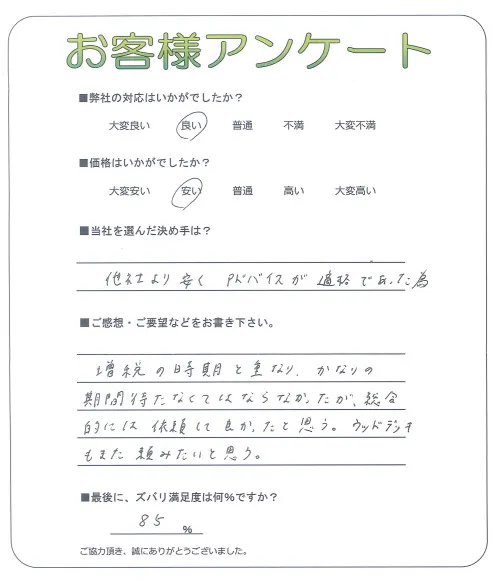 お客様アンケート
■弊社の対応はいかがでしたか？
大変良い 良い 普通 不満 大変不満
■価格はいかがでしたか？
大変安い 安い 普通 高い 大変高い
■当社を選んだ決め手は？
他社より安く アドバイスが 適格であった為
■ご感想・ご要望などをお書き下さい。
増税の時期と重なり、かなりの
期間待たなくてはならなかったが、総合
的には 依頼して良かったと思う。ウッドデッキ
もまた頼みたいと思う。
■最後に、ズバリ満足度は何%ですか？
85 %
ご協力頂き、誠にありがとうございました。